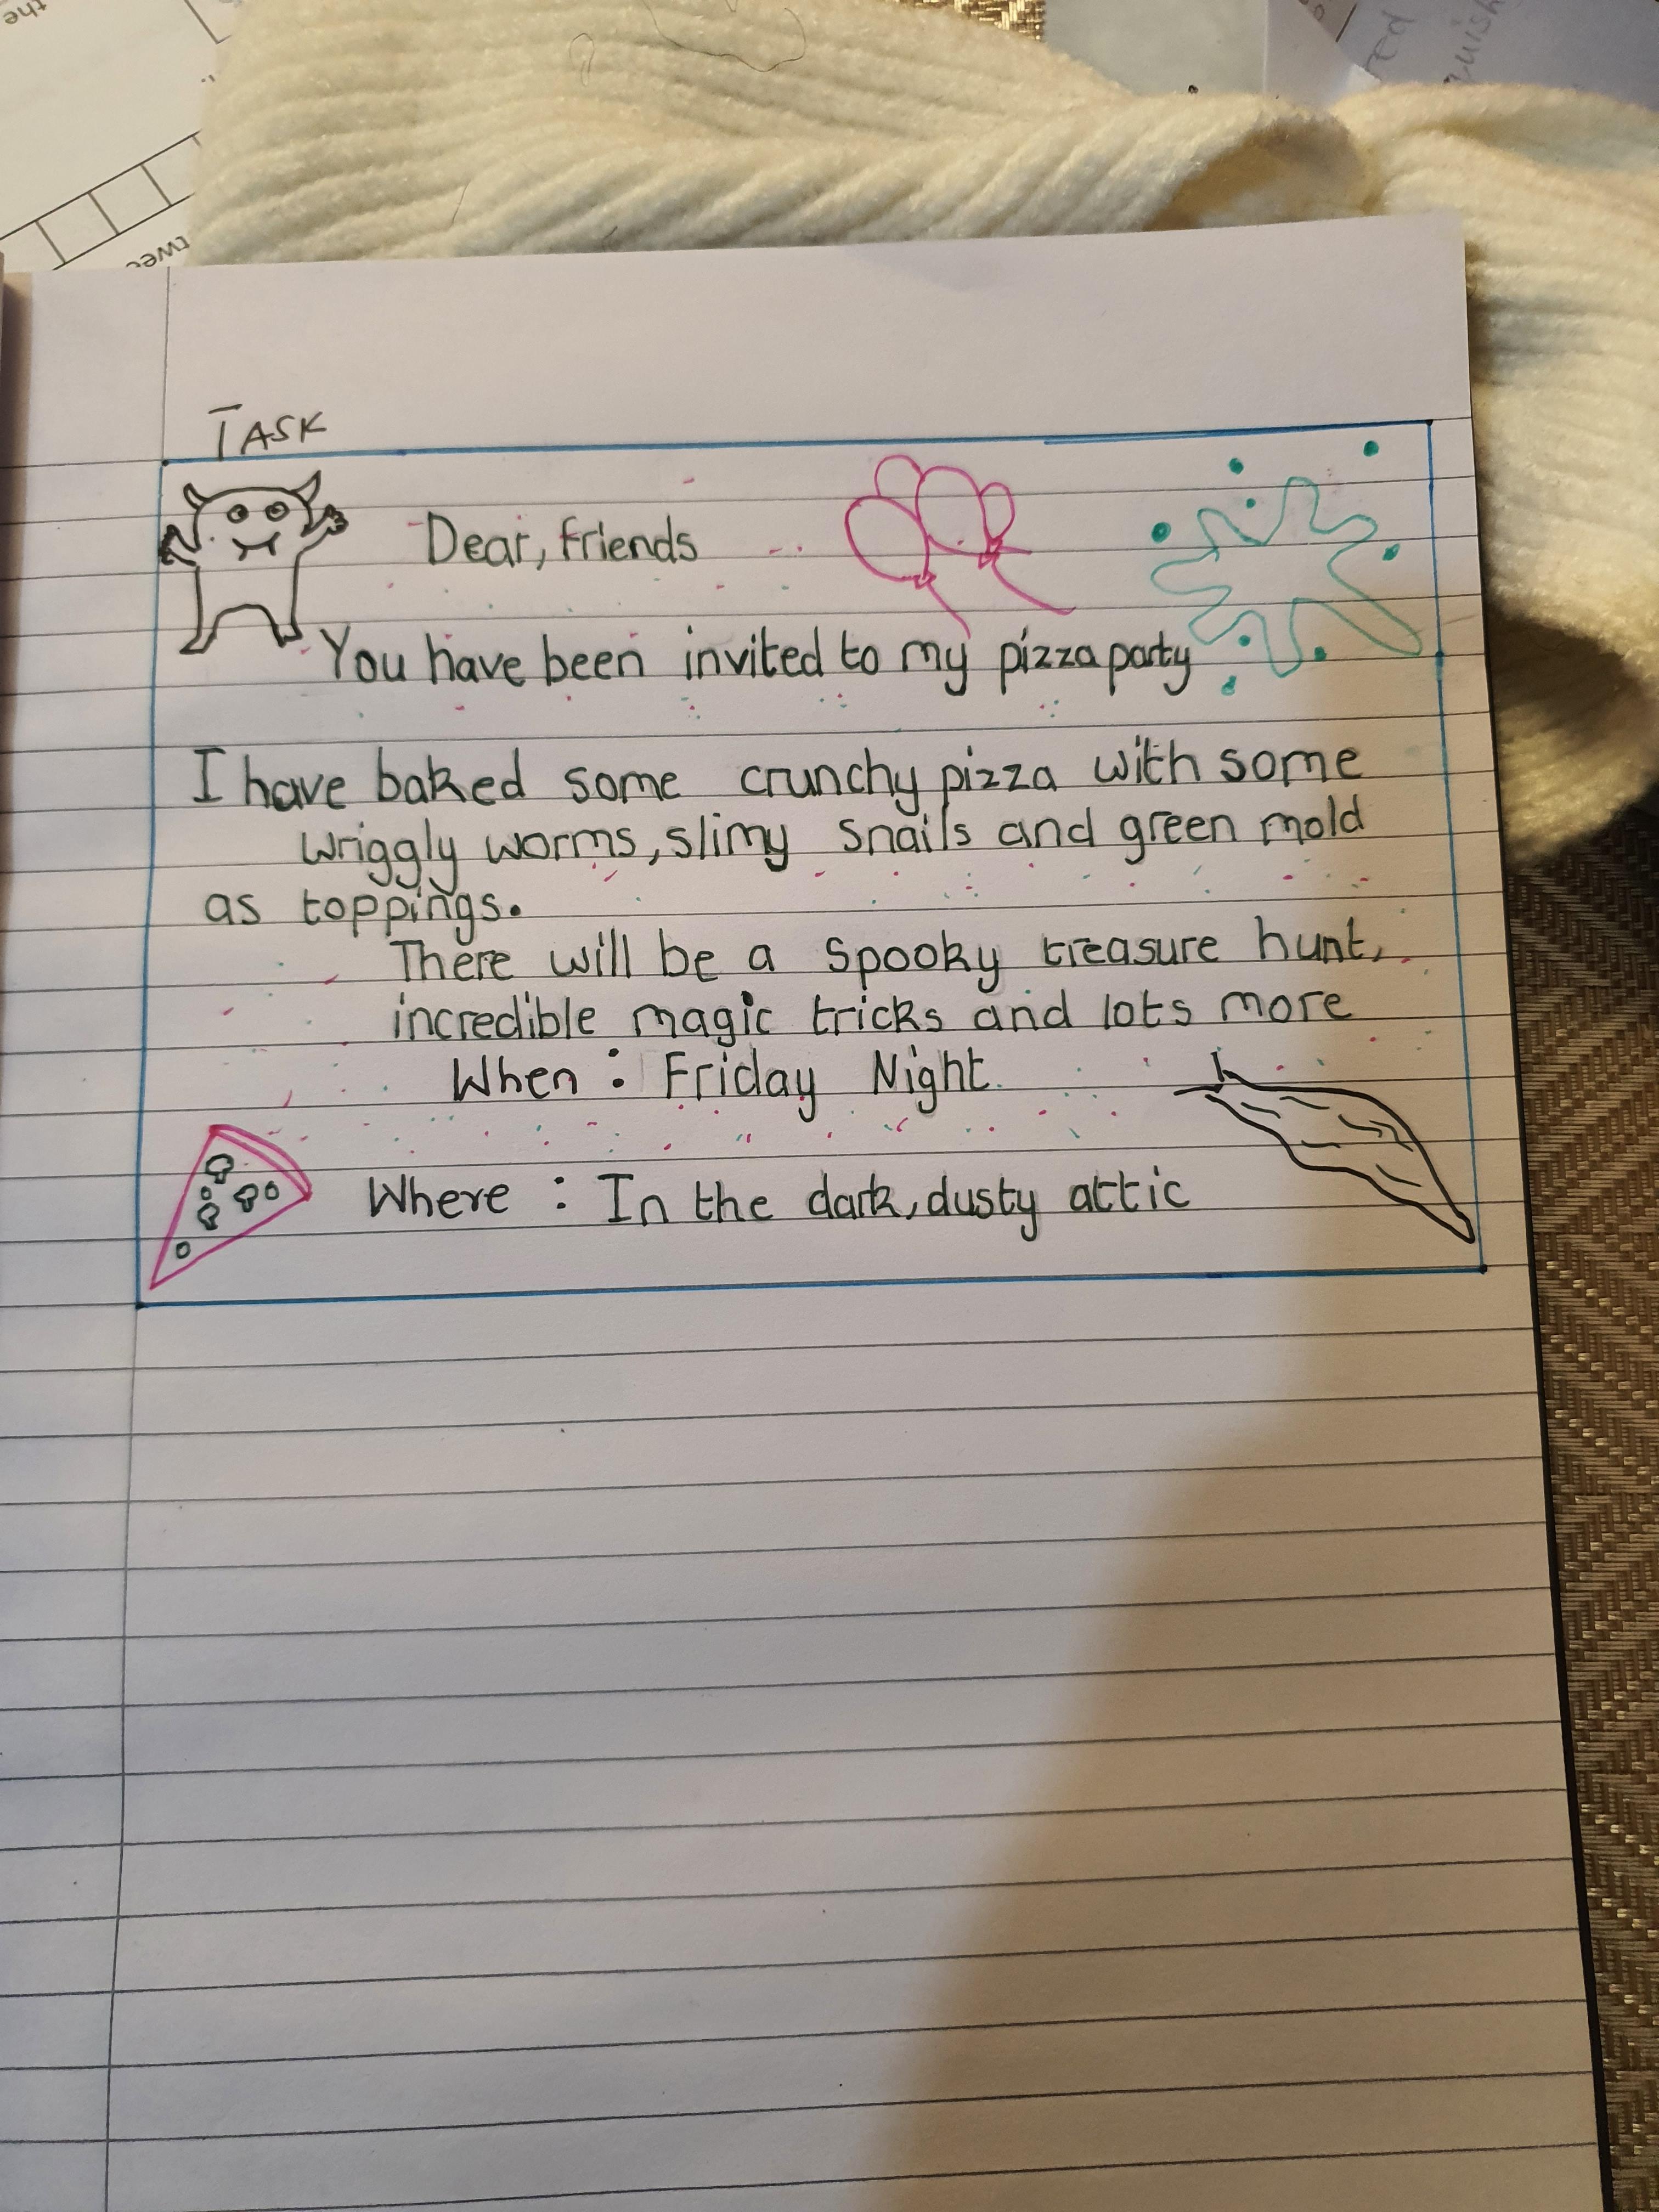 the
twee
red
TASK
Dear, friends
You have been invited to my pizza party
I have baked some crunchy pizza with some
wriggly worms, slimy snails and green mold
as toppings.
There will be a spooky treasure hunt,
incredible magic tricks and lots more
When : Friday Night.
Where : In the dark, dusty attic